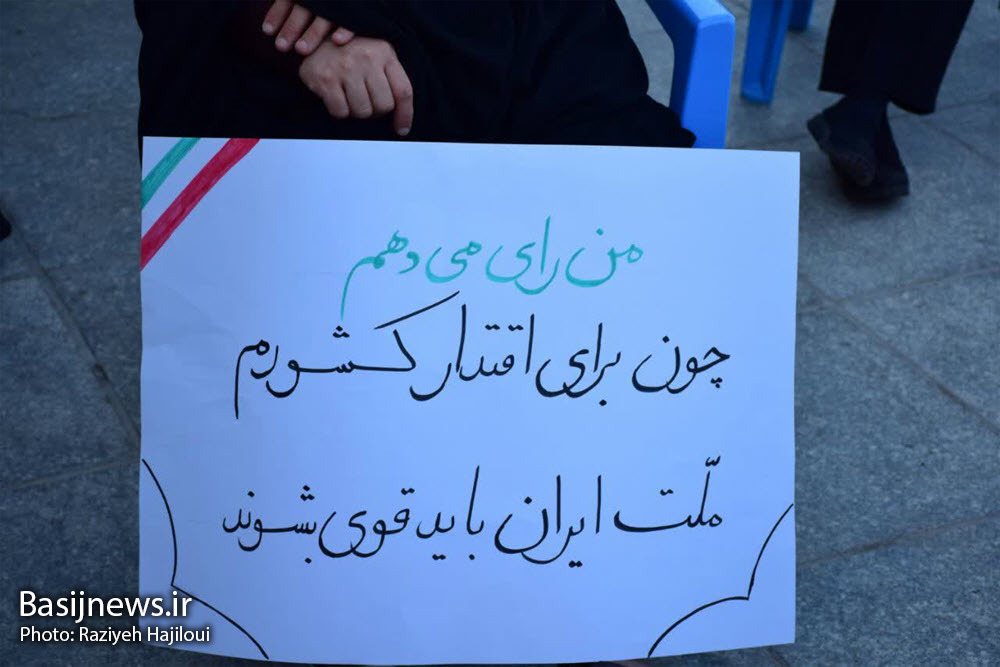 من رای می دهم
چون برای اقتدار کشورم
ملّت ایران باید قوی بشوند
Basijnews.ir
Photo: Raziyeh Hajiloui